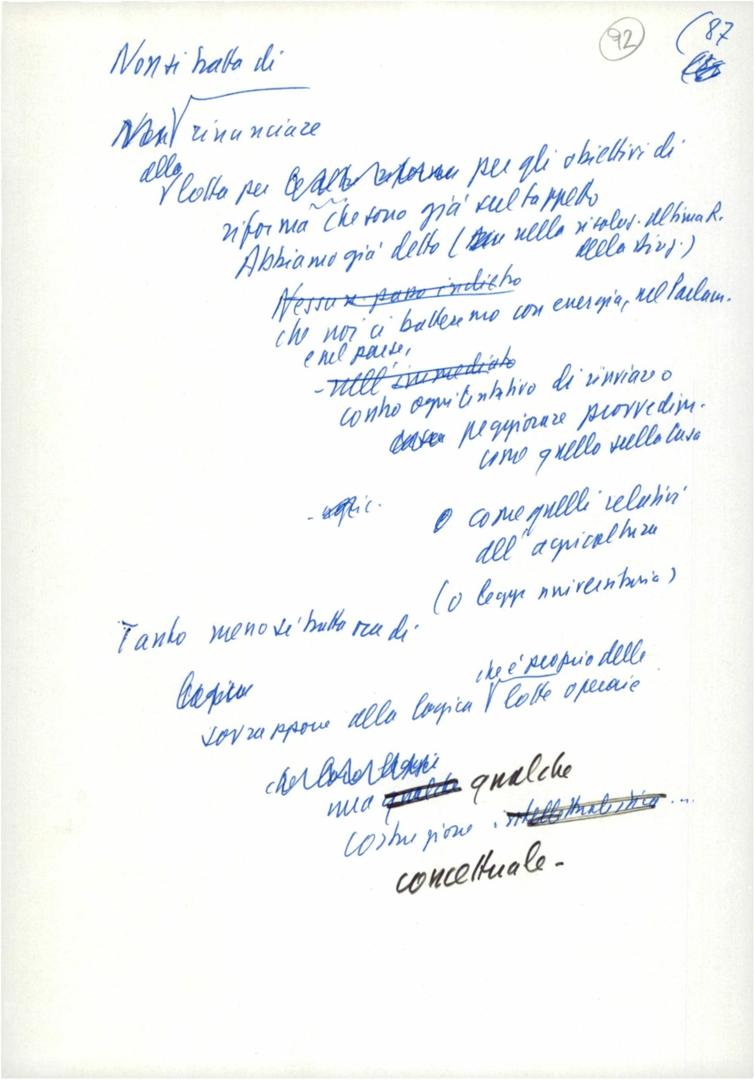 92
(87
Non si tratta di
rinunciare
alla lotta per per gli obiettivi di
riforma che sono già sul tappeto
Abbiamo già detto ( nella risoluz. ultima R.
della Direz.)
Nessun passo indietro
che noi ci batteremo con energia, nel Parlam.
e nel paese,
- nell'immediato
contro ogni tentativo di rinviare o
peggiorare provvedim.
come quello sulla Casa
o come quelli relativi
all'agricoltura
(o legge universitaria)
Tanto meno si tratta di
sovrapporre alla logica che è proprio delle
lotte operaie
una qualche qualche
costruzione intellettualistica...
concettuale -